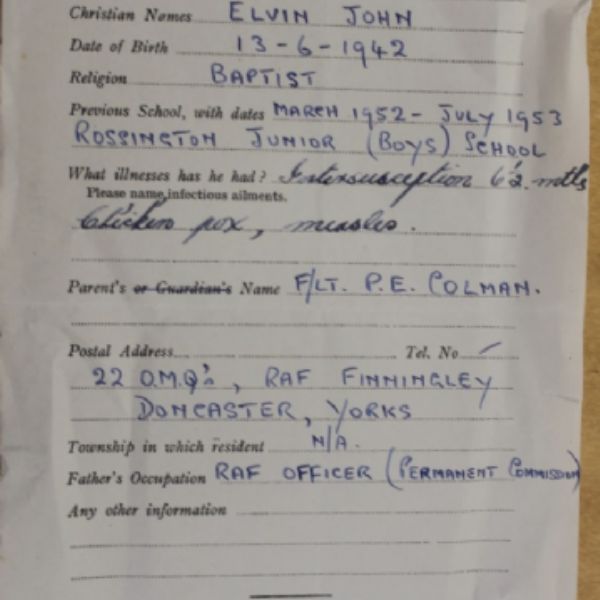 Christian Names ELVIN JOHN
Date of Birth 13-6-1942
Religion BAPTIST
Previous School, with dates MARCH 1952 - JULY 1953
ROSSINGTON JUNIOR (BOYS) SCHOOL
What illnesses has he had? Intersusception 6½ mths
Please name infectious ailments.
Chicken pox, measles.
Parent's or Guardian's Name F/LT. P.E. COLMAN.
Postal Address Tel. No –
22 O.M.Q's, RAF FINNINGLEY
DONCASTER, YORKS
Township in which resident N/A.
Father's Occupation RAF OFFICER (PERMANENT COMMISSION)
Any other information